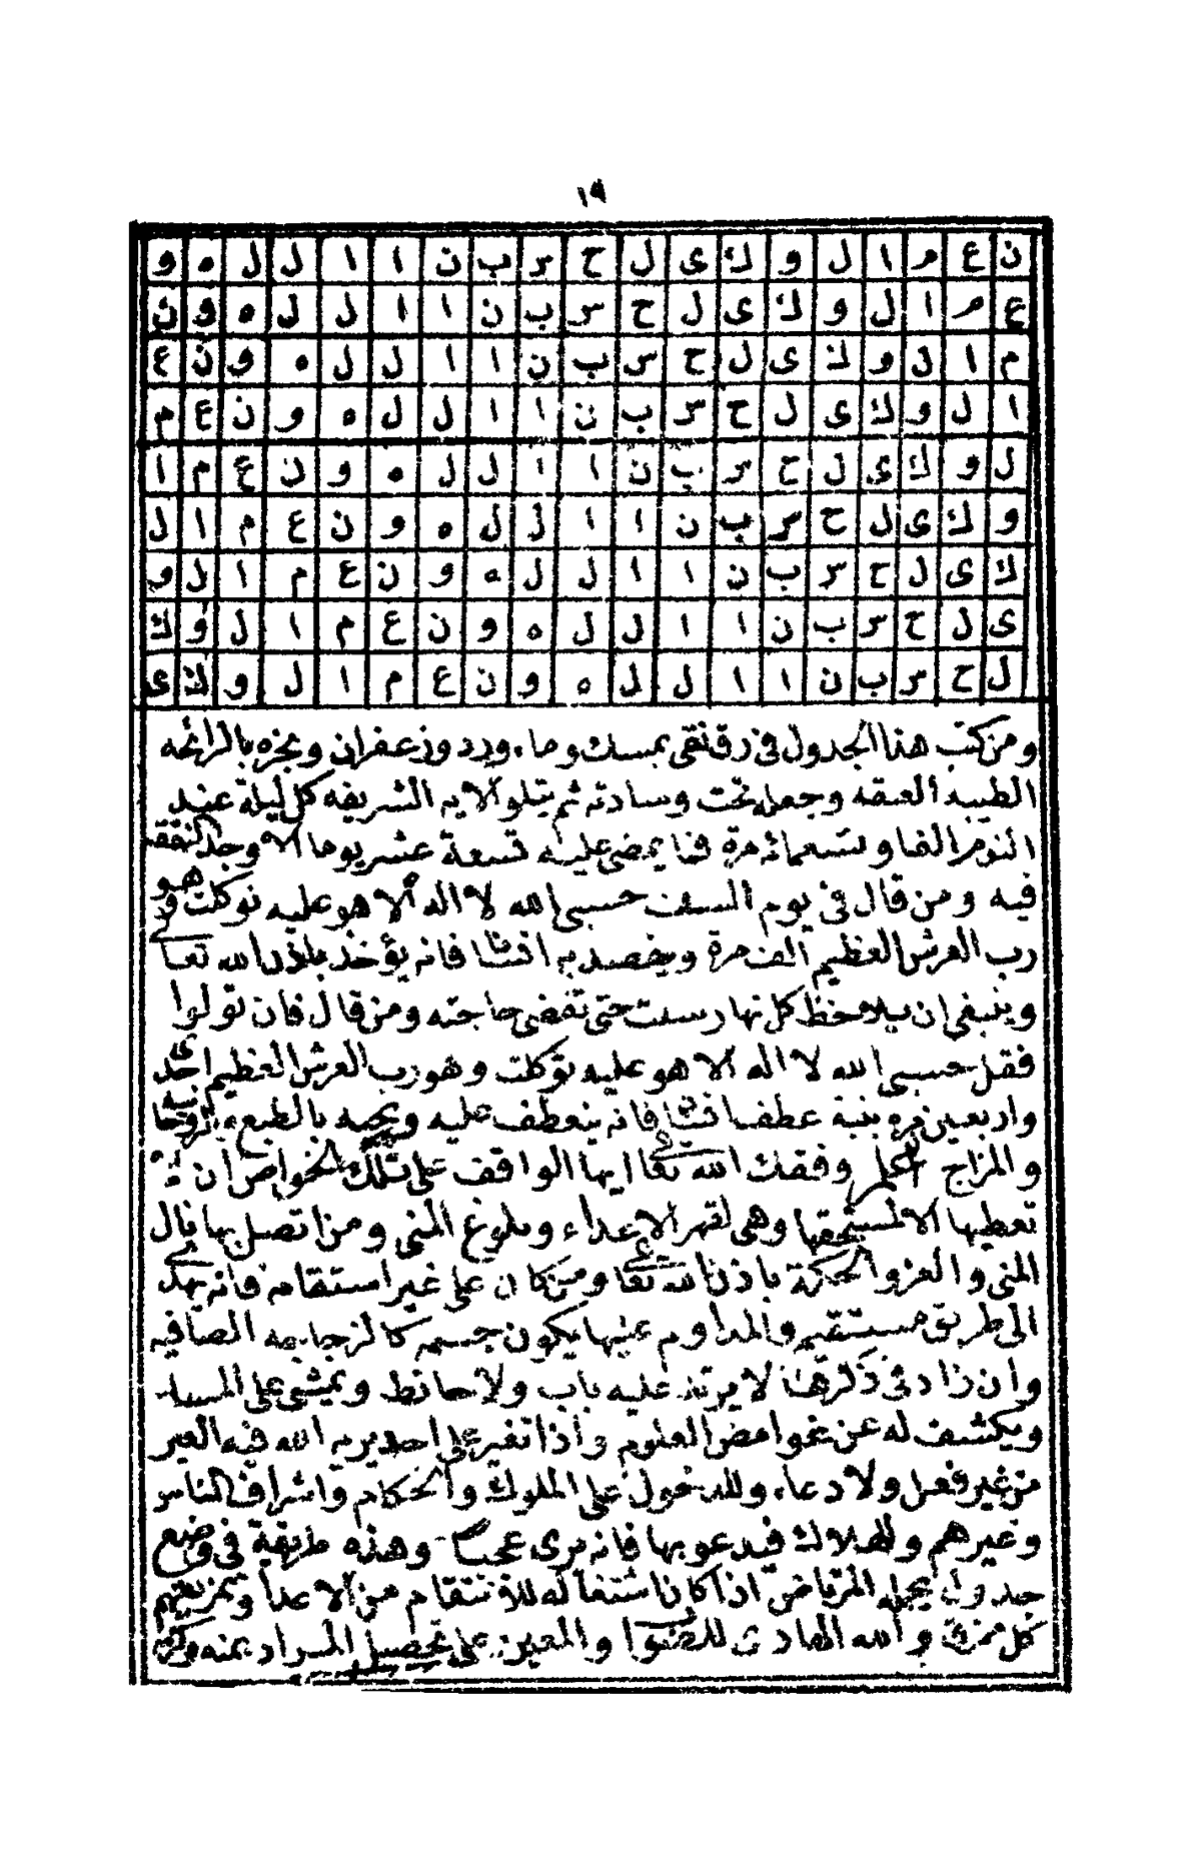 ١٩
ن ع م ا ل و ك ى ل ح س ب ن ا ا ل ل ه و
ع م ا ل و ك ى ل ح س ب ن ا ا ل ل ه و ن
م ا ل و ك ى ل ح س ب ن ا ا ل ل ه و ن ع
ا ل و ك ى ل ح س ب ن ا ا ل ل ه و ن ع م
ل و ك ى ل ح س ب ن ا ا ل ل ه و ن ع م ا
و ك ى ل ح س ب ن ا ا ل ل ه و ن ع م ا ل
ك ى ل ح س ب ن ا ا ل ل ه و ن ع م ا ل و
ى ل ح س ب ن ا ا ل ل ه و ن ع م ا ل و ك
ل ح س ب ن ا ا ل ل ه و ن ع م ا ل و ك ى
ومن كتب هذا الجدول فى رق نقى بمسك وماء ورد وزعفران وبخره بالرائحه
الطيبه العبقه وجعله تحت وسادته ثم يتلو الايه الشريفه كل ليلة عند
النوم الفا وتسعمائه مرة فما يمضى عليه تسعة عشر يوما الا وجد النفقه
فيه ومن قال فى يوم السبت حسبى الله لا اله الا هو عليه توكلت وهو
رب العرش العظيم الف مرة ويقصد به انسانا فانه يؤخذ باذن الله تعالى
وينبغى ان يلاحظ كل نهار سبت حتى تقضى حاجته ومن قال فان تولوا
فقل حسبى الله لا اله الا هو عليه توكلت وهو رب العرش العظيم احدى
واربعين مره بنية عطف انسان فانه ينعطف عليه ويحبه بالطبع
والمزاج اعلم وفقك الله تعالى ايها الواقف على تلك الخواص ان
تعطيها الا لمستحقها وهى لقهر الاعداء وبلوغ المنى ومن اتصل بها نال
المنى والعز والحكمة باذن الله تعالى ومن كان على غير استقامه فانه يهدى
الى طريق مستقيم والمداوم عليها يكون جسمه كالزجاجه الصافيه
وان زاد فى ذكرها لا يرتد عليه باب ولا حائط ويمشى على الماء
ويكشف له عن غوامض العلوم واذا تغير على احد يريه الله فيه العبر
من غير فعل ولا دعاء وللدخول على الملوك والحكام واشراف الناس
وغيرهم وللهلاك فيدعو بها فانه يرى عجبا وهذه طريقة فى وضع
جدول يحمله المرتاض اذا كان اشتغاله للانتقام من الاعدا وتمزيقهم
كل ممزق والله الهادى للصواب والمعين على تحصيل المراد بمنه وكرمه